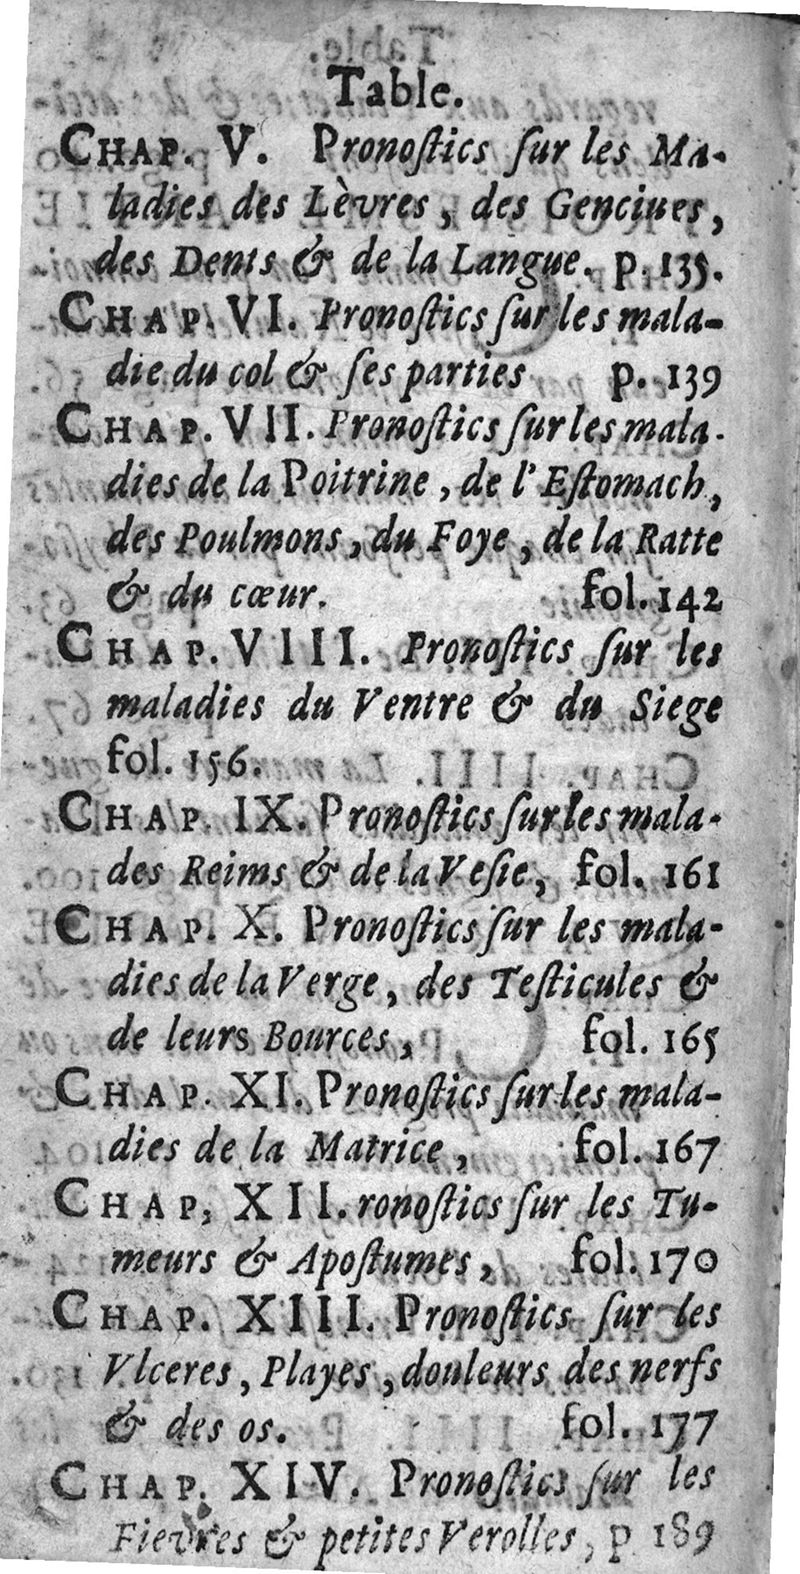 Table.
CHAP. V. Pronoſtics ſur les Ma-
ladies des Lèvres, des Genciues,
des Dents & de la Langue. p. 135.
CHAP. VI. Pronoſtics ſur les mala-
die du col & ſes parties p. 139
CHAP. VII. Pronoſtics ſur les mala-
dies de la Poitrine, de l'Eſtomach,
des Poulmons, du Foye, de la Ratte
& du cœur. fol. 142
CHAP. VIII. Pronoſtics ſur les
maladies du Ventre & du Siege
fol. 156.
CHAP. IX. Pronoſtics ſur les mala-
des Reims & de la Veſie, fol. 161
CHAP. X. Pronoſtics ſur les mala-
dies de la Verge, des Teſticules &
de leurs Bources, fol. 165
CHAP. XI. Pronoſtics ſur les mala-
dies de la Matrice, fol. 167
CHAP, XII. ronoſtics ſur les Tu-
meurs & Apoſtumes, fol. 170
CHAP. XIII. Pronoſtics ſur les
Vlceres, Playes, douleurs des nerfs
& des os. fol. 177
CHAP. XIV. Pronoſtics ſur les
Fievres & petites Verolles, p 189